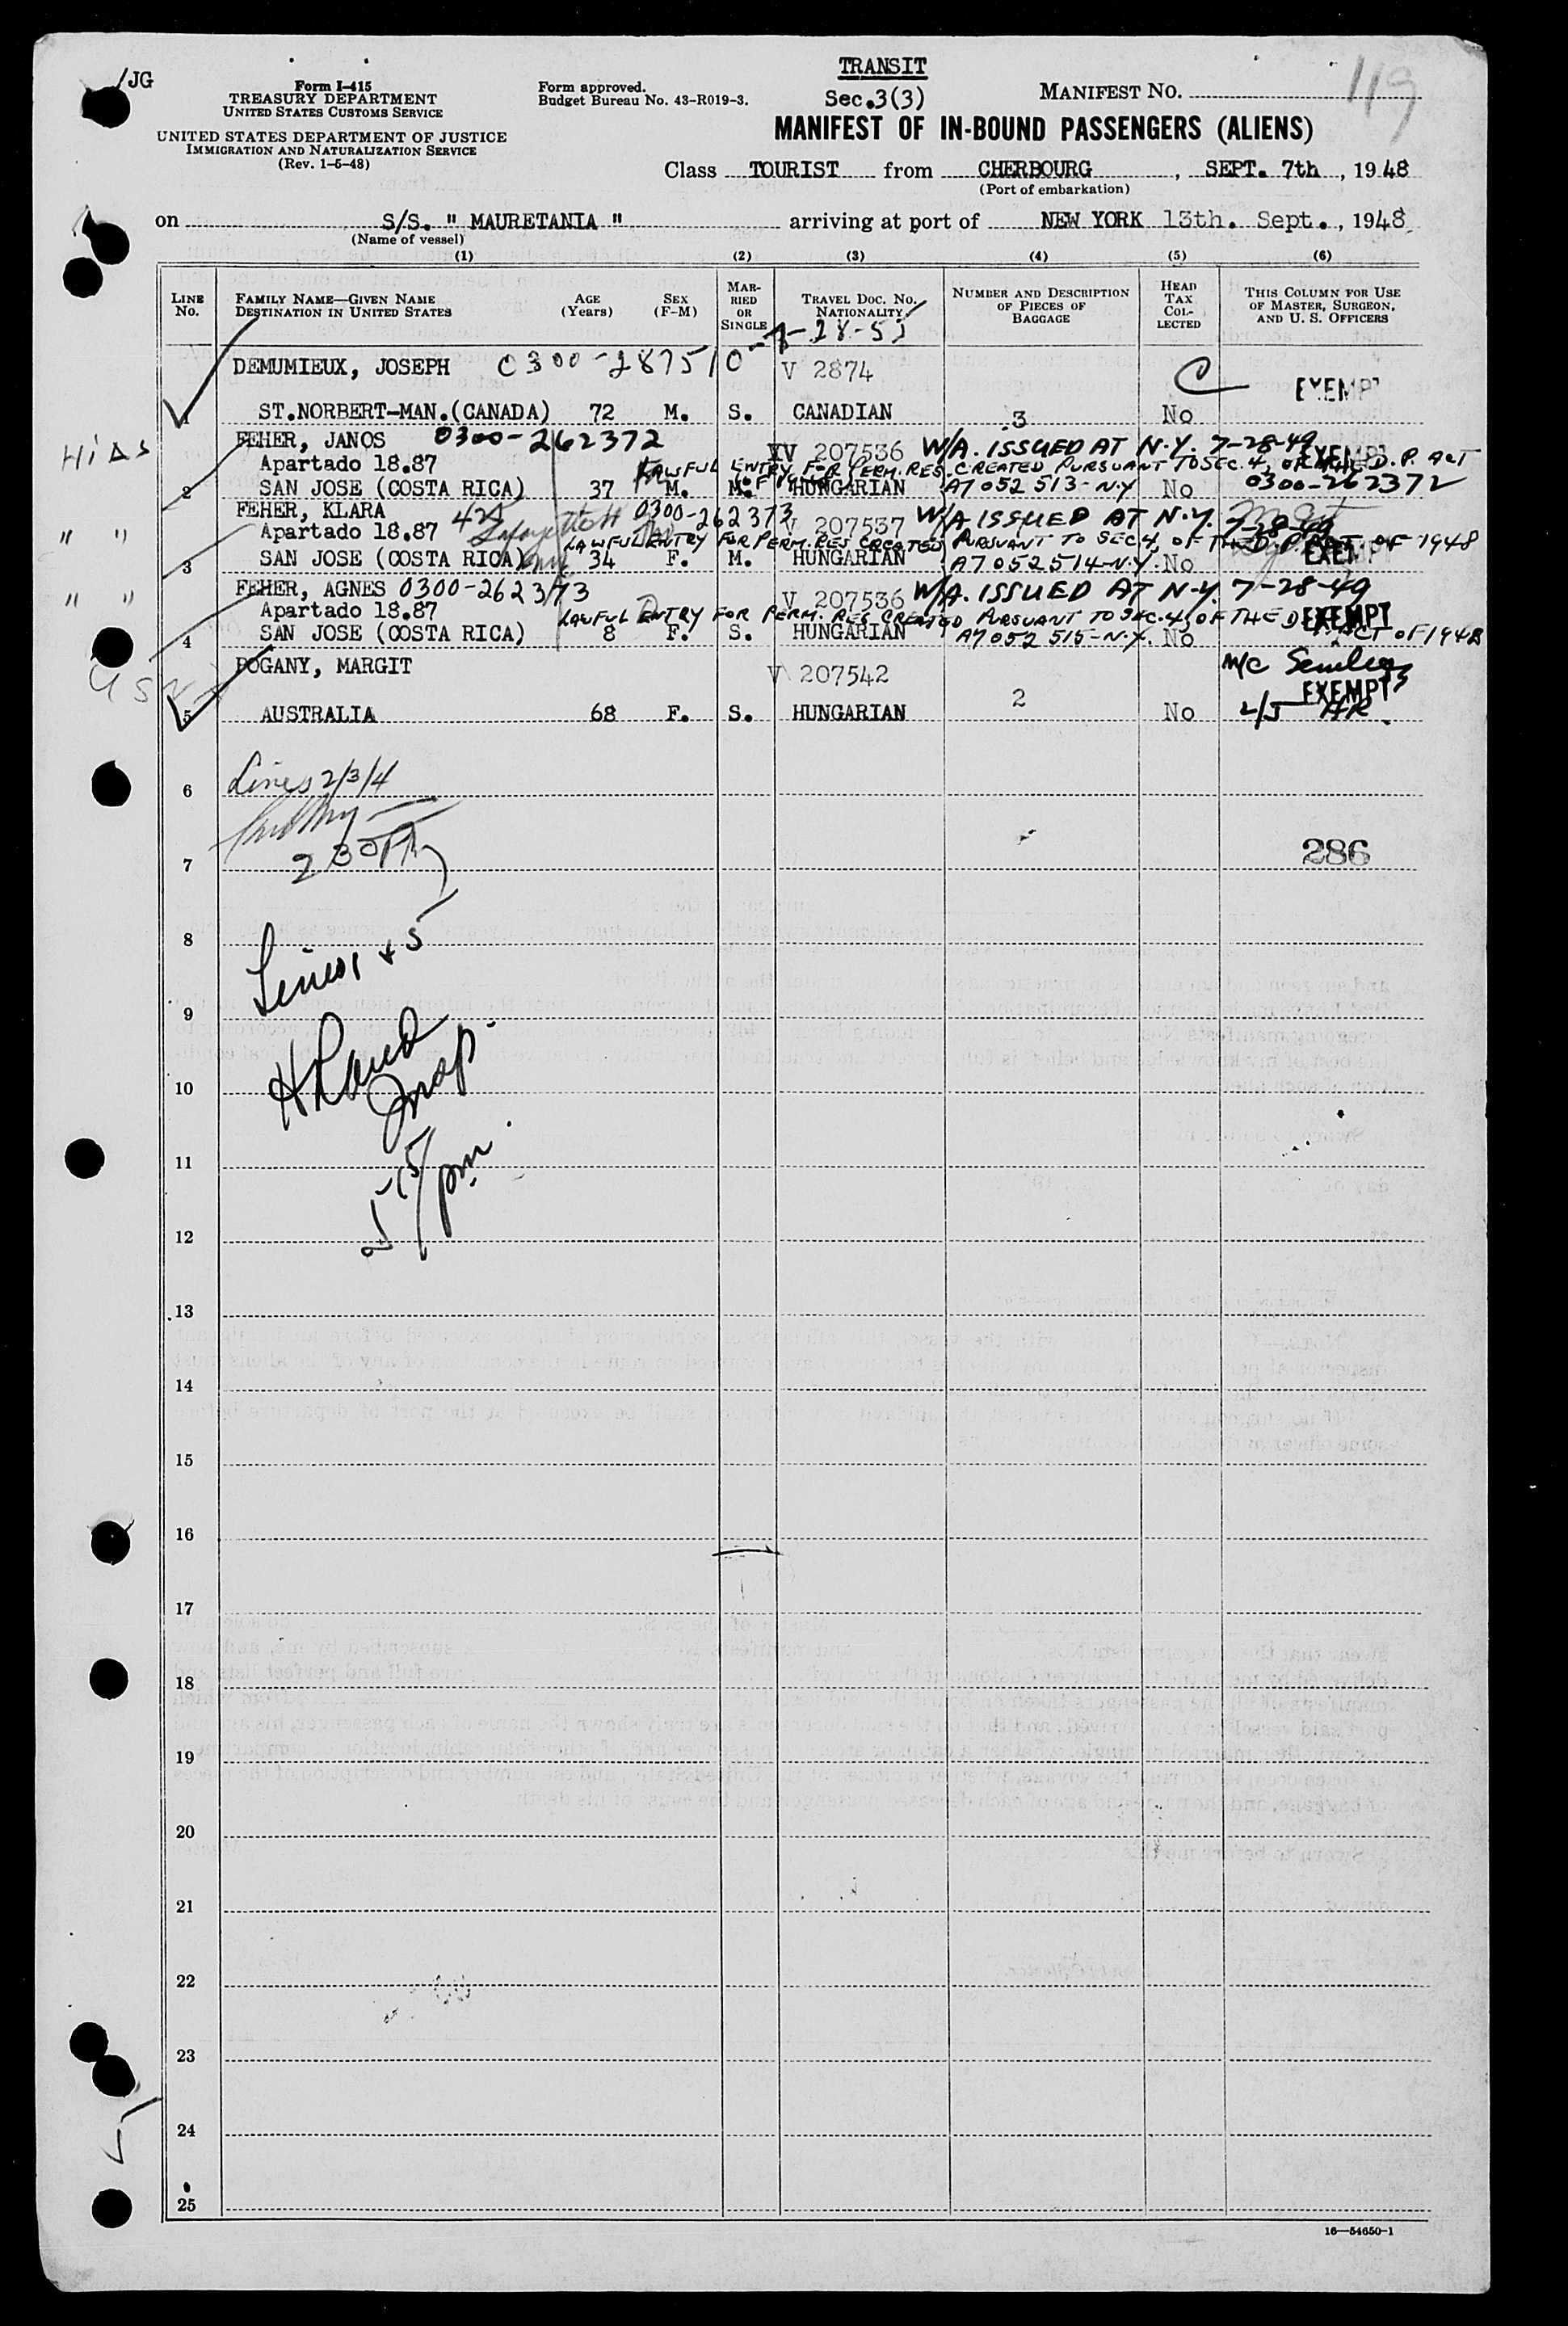 /JG
Form I-415
TREASURY DEPARTMENT
UNITED STATES CUSTOMS SERVICE
UNITED STATES DEPARTMENT OF JUSTICE
IMMIGRATION AND NATURALIZATION SERVICE
(Rev. 1-5-48)
Form approved.
Budget Bureau No. 43-R019-3.
TRANSIT
Sec.3(3)
MANIFEST NO. 119
MANIFEST OF IN-BOUND PASSENGERS (ALIENS)
Class TOURIST from CHERBOURG, SEPT. 7th, 1948
(Port of embarkation)
on S/S. " MAURETANIA " arriving at port of NEW YORK 13th. Sept., 1948
(Name of vessel)
(1) (2) (3) (4) (5) (6)
LINE No.
FAMILY NAME—GIVEN NAME
DESTINATION IN UNITED STATES
AGE (Years)
SEX (F-M)
MARRIED OR SINGLE
TRAVEL DOC. NO. NATIONALITY
NUMBER AND DESCRIPTION OF PIECES OF BAGGAGE
HEAD TAX COLLECTED
THIS COLUMN FOR USE OF MASTER, SURGEON, AND U. S. OFFICERS
DEMUMIEUX, JOSEPH 0300-287510-7-28-53 V 2874 C EXEMPT
1 ST.NORBERT-MAN.(CANADA) 72 M. S. CANADIAN 3 No
HIAS FEHER, JANOS 0300-262372 V 207536 W/A. ISSUED AT N.Y. 7-28-49 EXEMPT
Apartado 18.87 LAWFUL ENTRY FOR PERM. RES. CREATED PURSUANT TO SEC. 4, OF THE D.P. ACT OF 1948
2 SAN JOSE (COSTA RICA) 37 M. M. HUNGARIAN A7052513-N.Y No 0300-262372
FEHER, KLARA 424 Lafayette St 0300-262373 V 207537 W/A ISSUED AT N.Y. 7-28-49
" " Apartado 18.87 LAWFUL ENTRY FOR PERM. RES CREATED PURSUANT TO SEC 4, OF THE D.P. ACT. OF 1948
3 SAN JOSE (COSTA RICA) 34 F. M. HUNGARIAN A7052514-N.Y. No EXEMPT
" " FEHER, AGNES 0300-262373 V 207536 W/A. ISSUED AT N.Y. 7-28-49
Apartado 18.87 LAWFUL ENTRY FOR PERM. RES CREATED PURSUANT TO SEC. 4, OF THE D.P. ACT OF 1948 EXEMPT
4 SAN JOSE (COSTA RICA) 8 F. S. HUNGARIAN A7052515-N.Y. No
POGANY, MARGIT V 207542 2 M/C EXEMPT
5 AUSTRALIA 68 F. S. HUNGARIAN No L/5 HR
Lines 2/3/4
6
2 30 PM
7 286
8
Lines 1 + 5
9
10
Insp.
11
5 15/pm
12
13
14
15
16
17
18
19
20
21
22
23
24
25
16—54650-1